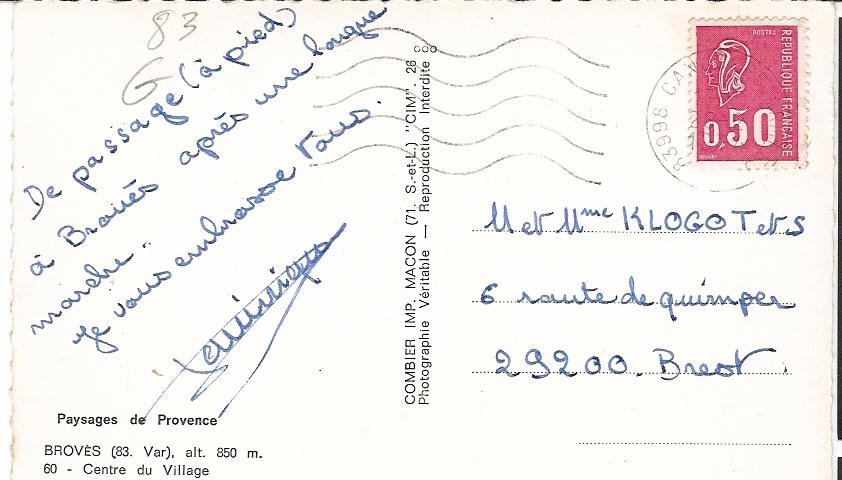 83
G
De passage (à pied)
à Brovès après une longue
marche.
Je vous embrasse tous.
Paysages de Provence
BROVÈS (83. Var), alt. 850 m.
60 - Centre du Village
COMBIER IMP. MACON (71. S.-et-L.) "CIM". 26
Photographie Véritable — Reproduction Interdite
83998 CA
POSTES
REPUBLIQUE FRANÇAISE
0,50
M et Mme KLOGOT et S
6 route de quimper
29200. Brest